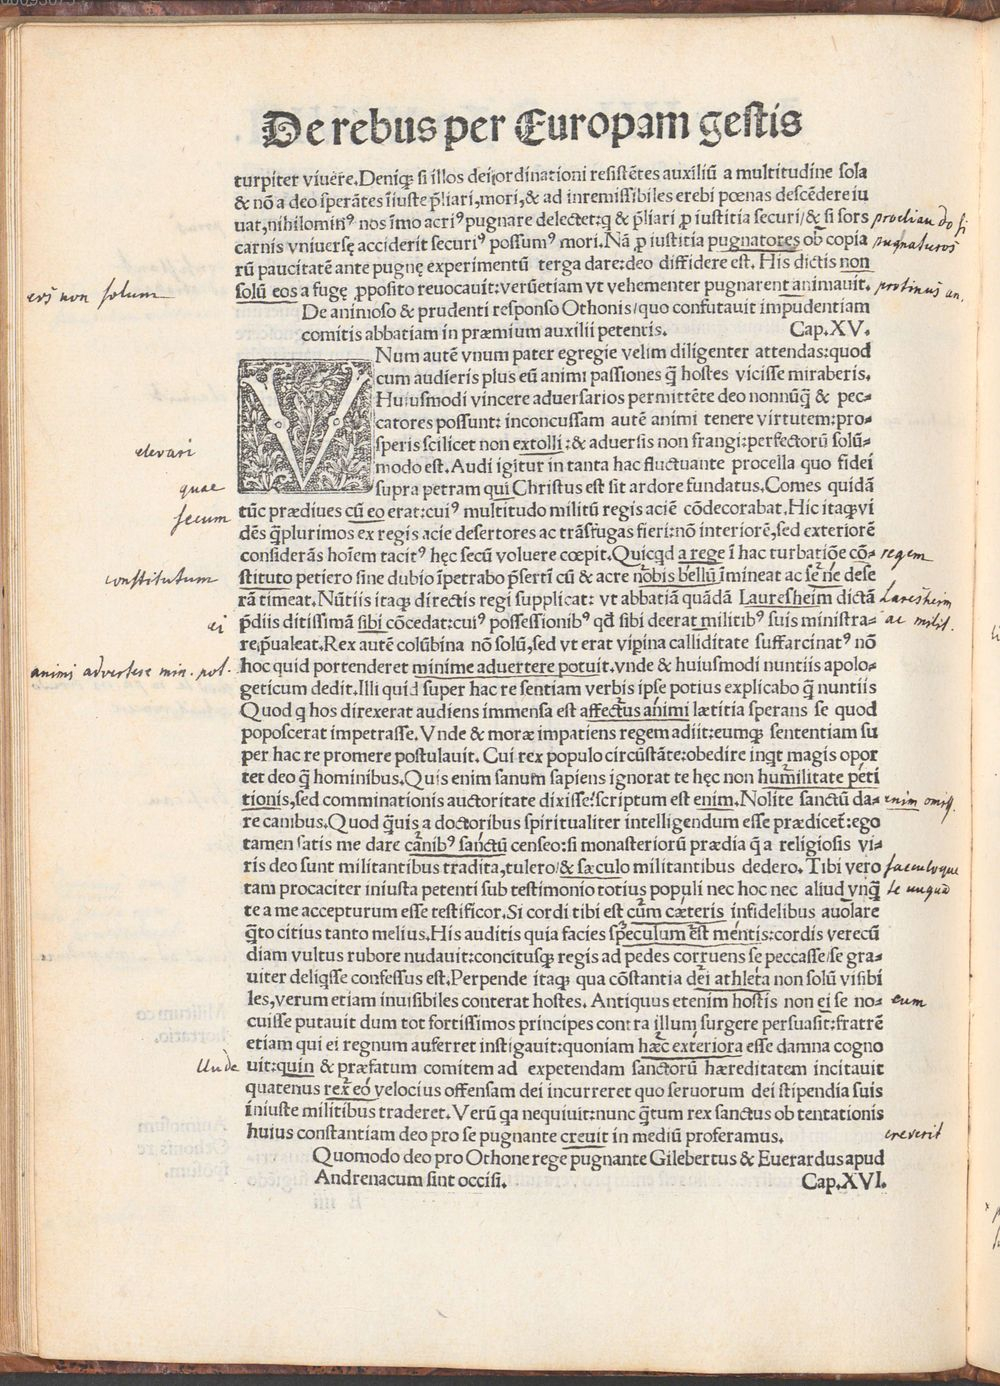 De rebus per Europam gestis
turpiter viuere. Deniqꝫ si illos dei ordinationi resistētes auxiliū a multitudine sola
& nō a deo sperātes īiuste p̄liari, mori, & ad inremissibiles erebi pœnas descēdere iu
uat, nihilominꝰ nos īmo acriꝰ pugnare delectet: q & p̄liari ꝓ iustitia securi/& si sors
proeliando si
carnis vniuersę acciderit securiꝰ possumꝰ mori. Nā ꝓ iustitia pugnatores ob copia
pugnaturos
rū paucitatē ante pugnę experimentū terga dare: deo diffidere est. His dictis non
solū eos a fugę ꝓposito reuocauit: verūetiam vt vehementer pugnarent animauit.
eos non solum
protinus an.
De animoso & prudenti responso Othonis/quo confutauit impudentiam
comitis abbatiam in præmium auxilii petentis. Cap. XV.
VNum autē vnum pater egregie velim diligenter attendas: quod
cum audieris plus eū animi passiones q̄ hostes vicisse miraberis.
Huiusmodi vincere aduersarios permittēte deo nonnūq̄ & pec=
catores possunt: inconcussam autē animi tenere virtutem: pro=
speris scilicet non extolli: & aduersis non frangi: perfectorū solū=
elevari
modo est. Audi igitur in tanta hac fluctuante procella quo fidei
supra petram qui Christus est sit ardore fundatus. Comes quidā
quae
tūc prædiues cū eo erat: cuiꝰ multitudo militū regis aciē cōdecorabat. Hic itaqꝫ vi
secum
dēs q̄plurimos ex regis acie desertores ac trāsfugas fieri: nō interiorē, sed exteriorē
considerās hoīem tacitꝰ hęc secū voluere cœpit. Quicqd a rege ī hac turbatiōe cō=
regem
stituto petiero sine dubio īpetrabo p̄sertī cū & acre nobis bellū īmineat ac se ne dese
constitutum
rā timeat. Nūtiis itaqꝫ directis regi supplicat: vt abbatiā quādā Lauresheim dictā
Laresheim
p̄diis ditissimā sibi cōcedat: cuiꝰ possessionibꝰ qd sibi deerat militibꝰ suis ministra=
ei
ac milit.
re p̄ualeat. Rex autē colūbina nō solū, sed vt erat vipina calliditate suffarcinatꝰ nō
hoc quid portenderet minime aduertere potuit. vnde & huiusmodi nuntiis apolo=
animi advertese min. pot.
geticum dedit. Illi quid super hac re sentiam verbis ipse potius explicabo q̄ nuntiis
Quod q hos direxerat audiens immensa est affectus animi lætitia sperans se quod
poposcerat impetrasse. Vnde & moræ impatiens regem adiit: eumqꝫ sententiam su
per hac re promere postulauit. Cui rex populo circūstāte: obedire inqt magis opor
tet deo q̄ hominibus. Quis enim sanum sapiens ignorat te hęc non humilitate peti
tionis, sed comminationis auctoritate dixisse? scriptum est enim. Nolite sanctū da=
enim omiss.
re canibus. Quod q̄uis a doctoribus spiritualiter intelligendum esse prædicet: ego
tamen satis me dare canibꝰ sanctū censeo: si monasteriorū prædia q̄ a religiosis vi=
ris deo sunt militantibus tradita, tulero/& sæculo militantibus dedero. Tibi vero
saeculoque
tam procaciter iniusta petenti sub testimonio totius populi nec hoc nec aliud vnq̄
te unquā
te a me accepturum esse testificor. Si cordi tibi est cum cæteris infidelibus auolare
q̄to citius tanto melius. His auditis quia facies speculum est mentis: cordis verecū
diam vultus rubore nudauit: concitusqꝫ regis ad pedes corruens se peccasse/se gra=
uiter deliqsse confessus est. Perpende itaqꝫ qua cōstantia dei athleta non solū visibi
les, verum etiam inuisibiles conterat hostes. Antiquus etenim hostis non ei se no=
eum
cuisse putauit dum tot fortissimos principes contra illum surgere persuasit: fratrē
etiam qui ei regnum auferret instigauit: quoniam hæc exteriora esse damna cogno
uit: quin & præfatum comitem ad expetendam sanctorū hæreditatem incitauit
Unde
quatenus rex eo velocius offensam dei incurreret quo seruorum dei stipendia suis
iniuste militibus traderet. Verū qa nequiuit: nunc q̄tum rex sanctus ob tentationis
huius constantiam deo pro se pugnante creuit in mediū proferamus.
creverit
Quomodo deo pro Othone rege pugnante Gilebertus & Euerardus apud
Andrenacum sint occisi. Cap. XVI.